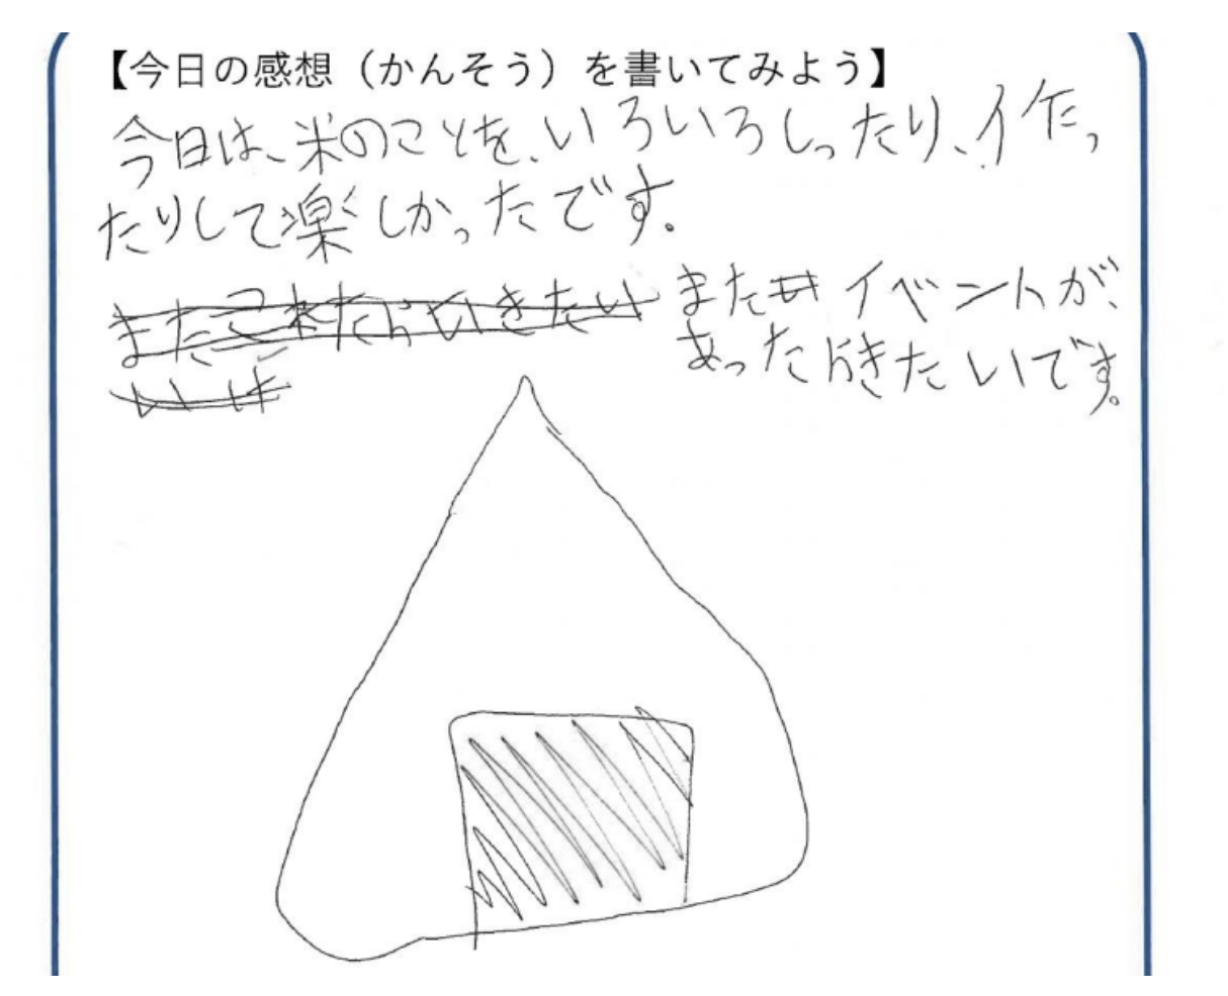 【今日の感想（かんそう）を書いてみよう】
今日は、米のことを、いろいろしったり、作っ
たりして楽しかったです。
またこれたらいきたい
いいは
また イベントが、
あったらきたいです。